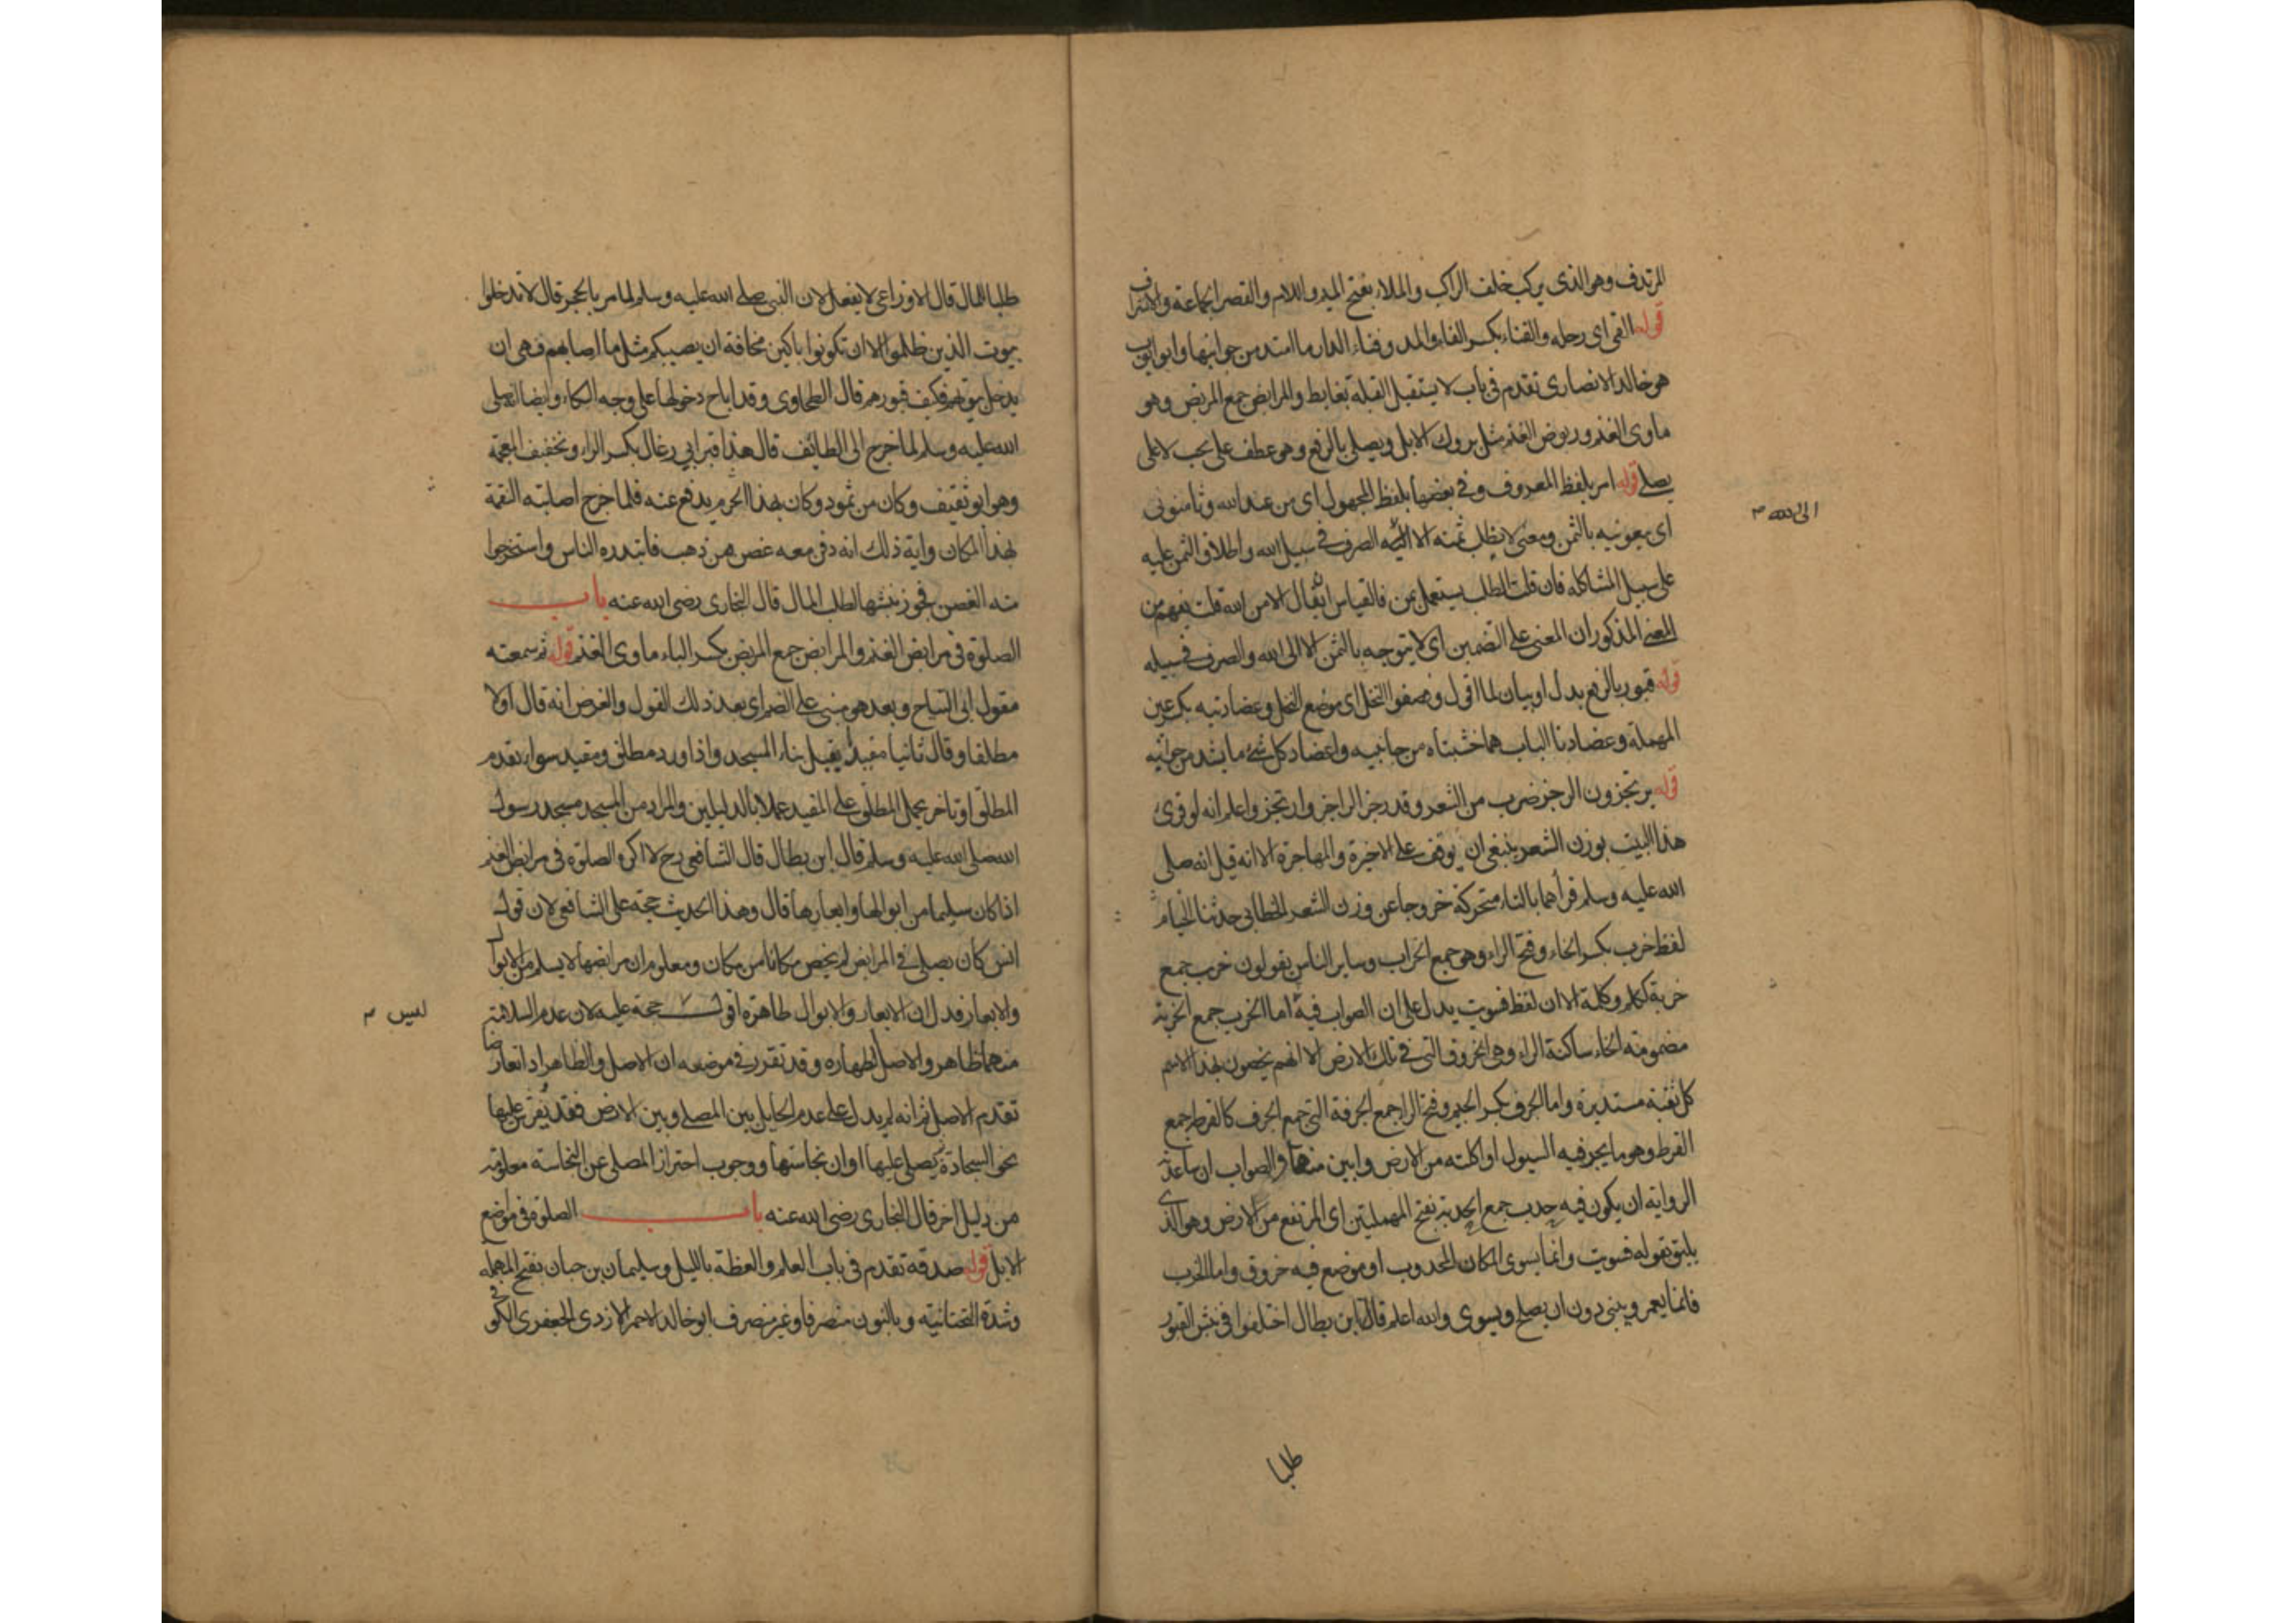 المرتدف وهو الذى يركب خلف الراكب والملاء بفتح الميم واللام والقصر الجماعة والاشراف
قوله القى اى رحله والفناء بكسر الفاء والمد وفناء الدار ما امتد من جوانبها وابو ايوب
هو خالد الانصارى تقدم فى باب لا يستقبل القبلة بغايط والمرابض جمع المربض وهو
ماوى الغنم وربوض الغنم مثل بروك الابل ويصلى بالرفع وهو عطف على يحب لا على
يصلى قوله امر بلفظ المعروف وفى بعضها بلفظ المجهول اى من عند الله وثامنونى
اى بيعونيه بالثمن ومعنى لا نطلب ثمنه الا الى الله الصرف فى سبيل الله واطلاق الثمن عليه
على سبيل المشاكله فان قلت الطلب يستعمل بمن فالقياس ان يقال الا من الله قلت يفهم من
المعنى المذكور ان المعنى على التضمين اى لا يتوجه بالثمن الا الى الله والصرف فى سبيله
قوله قبور بالرفع بدل او بيان لما اقول وصفوا النخل اى موضع النخل وعضادتيه بكسر عين
المهملة وعضادتا الباب هما خشبتاه من جانبيه واعضاد كل شئ ما يشد من جوانبه
قوله يرتجزون الرجز ضرب من الشعر وقد رجز الراجز وارتجز واعلم انه لو قرى
هذا البيت بوزن الشعر ينبغى ان يوقف على الاخيرة والمهاجرة الا انه قيل انه صلى
الله عليه وسلم قرأهما بالتاء متحركة خروجا عن وزن الشعر الخطابى حدثنا الخيام
لفظ خرب بكسر الخاء وفتح الراء وهو جمع الخراب وساير الناس يقولون خرب جمع
خربة ككلم وكلمة الا ان لفظ فسويت يدل على ان الصواب فيه اما الخرب جمع الخربة
مضمومة الخاء ساكنة الراء وهى الخروق التى فى تلك الارض الا انهم يخصون بهذا الاسم
كل ثقبة مستديرة واما الجرف بكسر الجيم وفتح الراء جمع الجرفة التى جمع الجرف كالقرطة جمع
القرط وهو ما يجرفيه السيول او اكلته من الارض وابين منهما والصواب ان ساعدته
الرواية ان يكون فيه حدب جمع الحدبة بفتح المهملتين اى المرتفع من الارض وهو الذى
يليق بقوله فسويت وانما يسوى المكان المحدوب او موضع فيه خروق واما الخرب
فانما يعمر ويبنى دون ان يصلح ويسوى والله اعلم قال ابن بطال اختلفوا فى نبش القبور
الى الله
طلبا
طلبا للمال قال الاوزاعى لا يفعل لان النبى صلى الله عليه وسلم لما مر بالحجر قال لا تدخلوا
بيوت الذين ظلموا الا ان تكونوا باكين مخافة ان يصيبكم مثل ما اصابهم فهى ان
يدخل بيوتهم فكيف قبورهم قال الطحاوى وقد اباح دخولها على وجه البكاء وايضا انه صلى
الله عليه وسلم لما خرج الى الطائف قال هذا قبر ابى رغال بكسر الراء وتخفيف المعجمة
وهو ابو ثقيف وكان من ثمود وكان بهذا الحرم يدفع عنه فلما خرج اصابته النقمة
بهذا المكان واية ذلك انه دفن معه غصن من ذهب فابتدره الناس واستخرجوا
منه الغصن فجوز نبشها لطلب المال قال البخارى رضى الله عنه باب
الصلوة فى مرابض الغنم والمرابض جمع المربض بكسر الباء ماوى الغنم قوله ثم سمعته
مقول ابى التياح وبعد هو مبنى على الضم اى بعد ذلك القول والغرض انه قال اولا
مطلقا وقال ثانيا مقيدا بقبل بناء المسجد واذا ورد مطلق ومقيد سواء تقدم
المطلق او تاخر يحمل المطلق على المقيد عملا بالدليلين والمراد من المسجد مسجد رسول
الله صلى الله عليه وسلم قال ابن بطال قال الشافعى رح لا اكره الصلوة فى مرابض الغنم
اذا كان سليما من ابوالها وابعارها قال وهذا الحديث حجة على الشافعى لان قول
انس كان يصلى فى المرابض لم يخص مكانا من مكان ومعلوم ان مرابضها لا يسلم من الابوال
والابعار فدل ان الابعار والابوال طاهرة اقول حجة عليه لان عدم السلامة
ليس
منهما ظاهر والاصل الطهارة وقد تقرر فى موضعه ان الاصل والظاهر اذا تعارضا
تقدم الاصل ثم انه لم يدل على عدم الحايل بين المصلى وبين الارض فقد يفرش عليها
نحو السجادة يصلى عليها او ان نجاستها ووجوب احتراز المصلى عن النجاسة معلوم
من دليل اخر قال البخارى رضى الله عنه باب الصلوة فى مواضع
الابل قوله صدقة تقدم فى باب العلم والعظة بالليل وسليمان بن حبان بفتح المهملة
وشدة التحتانية وبالنون منصرفا وغير منصرف ابو خالد الاحمر الازدى الجعفرى الكوفى